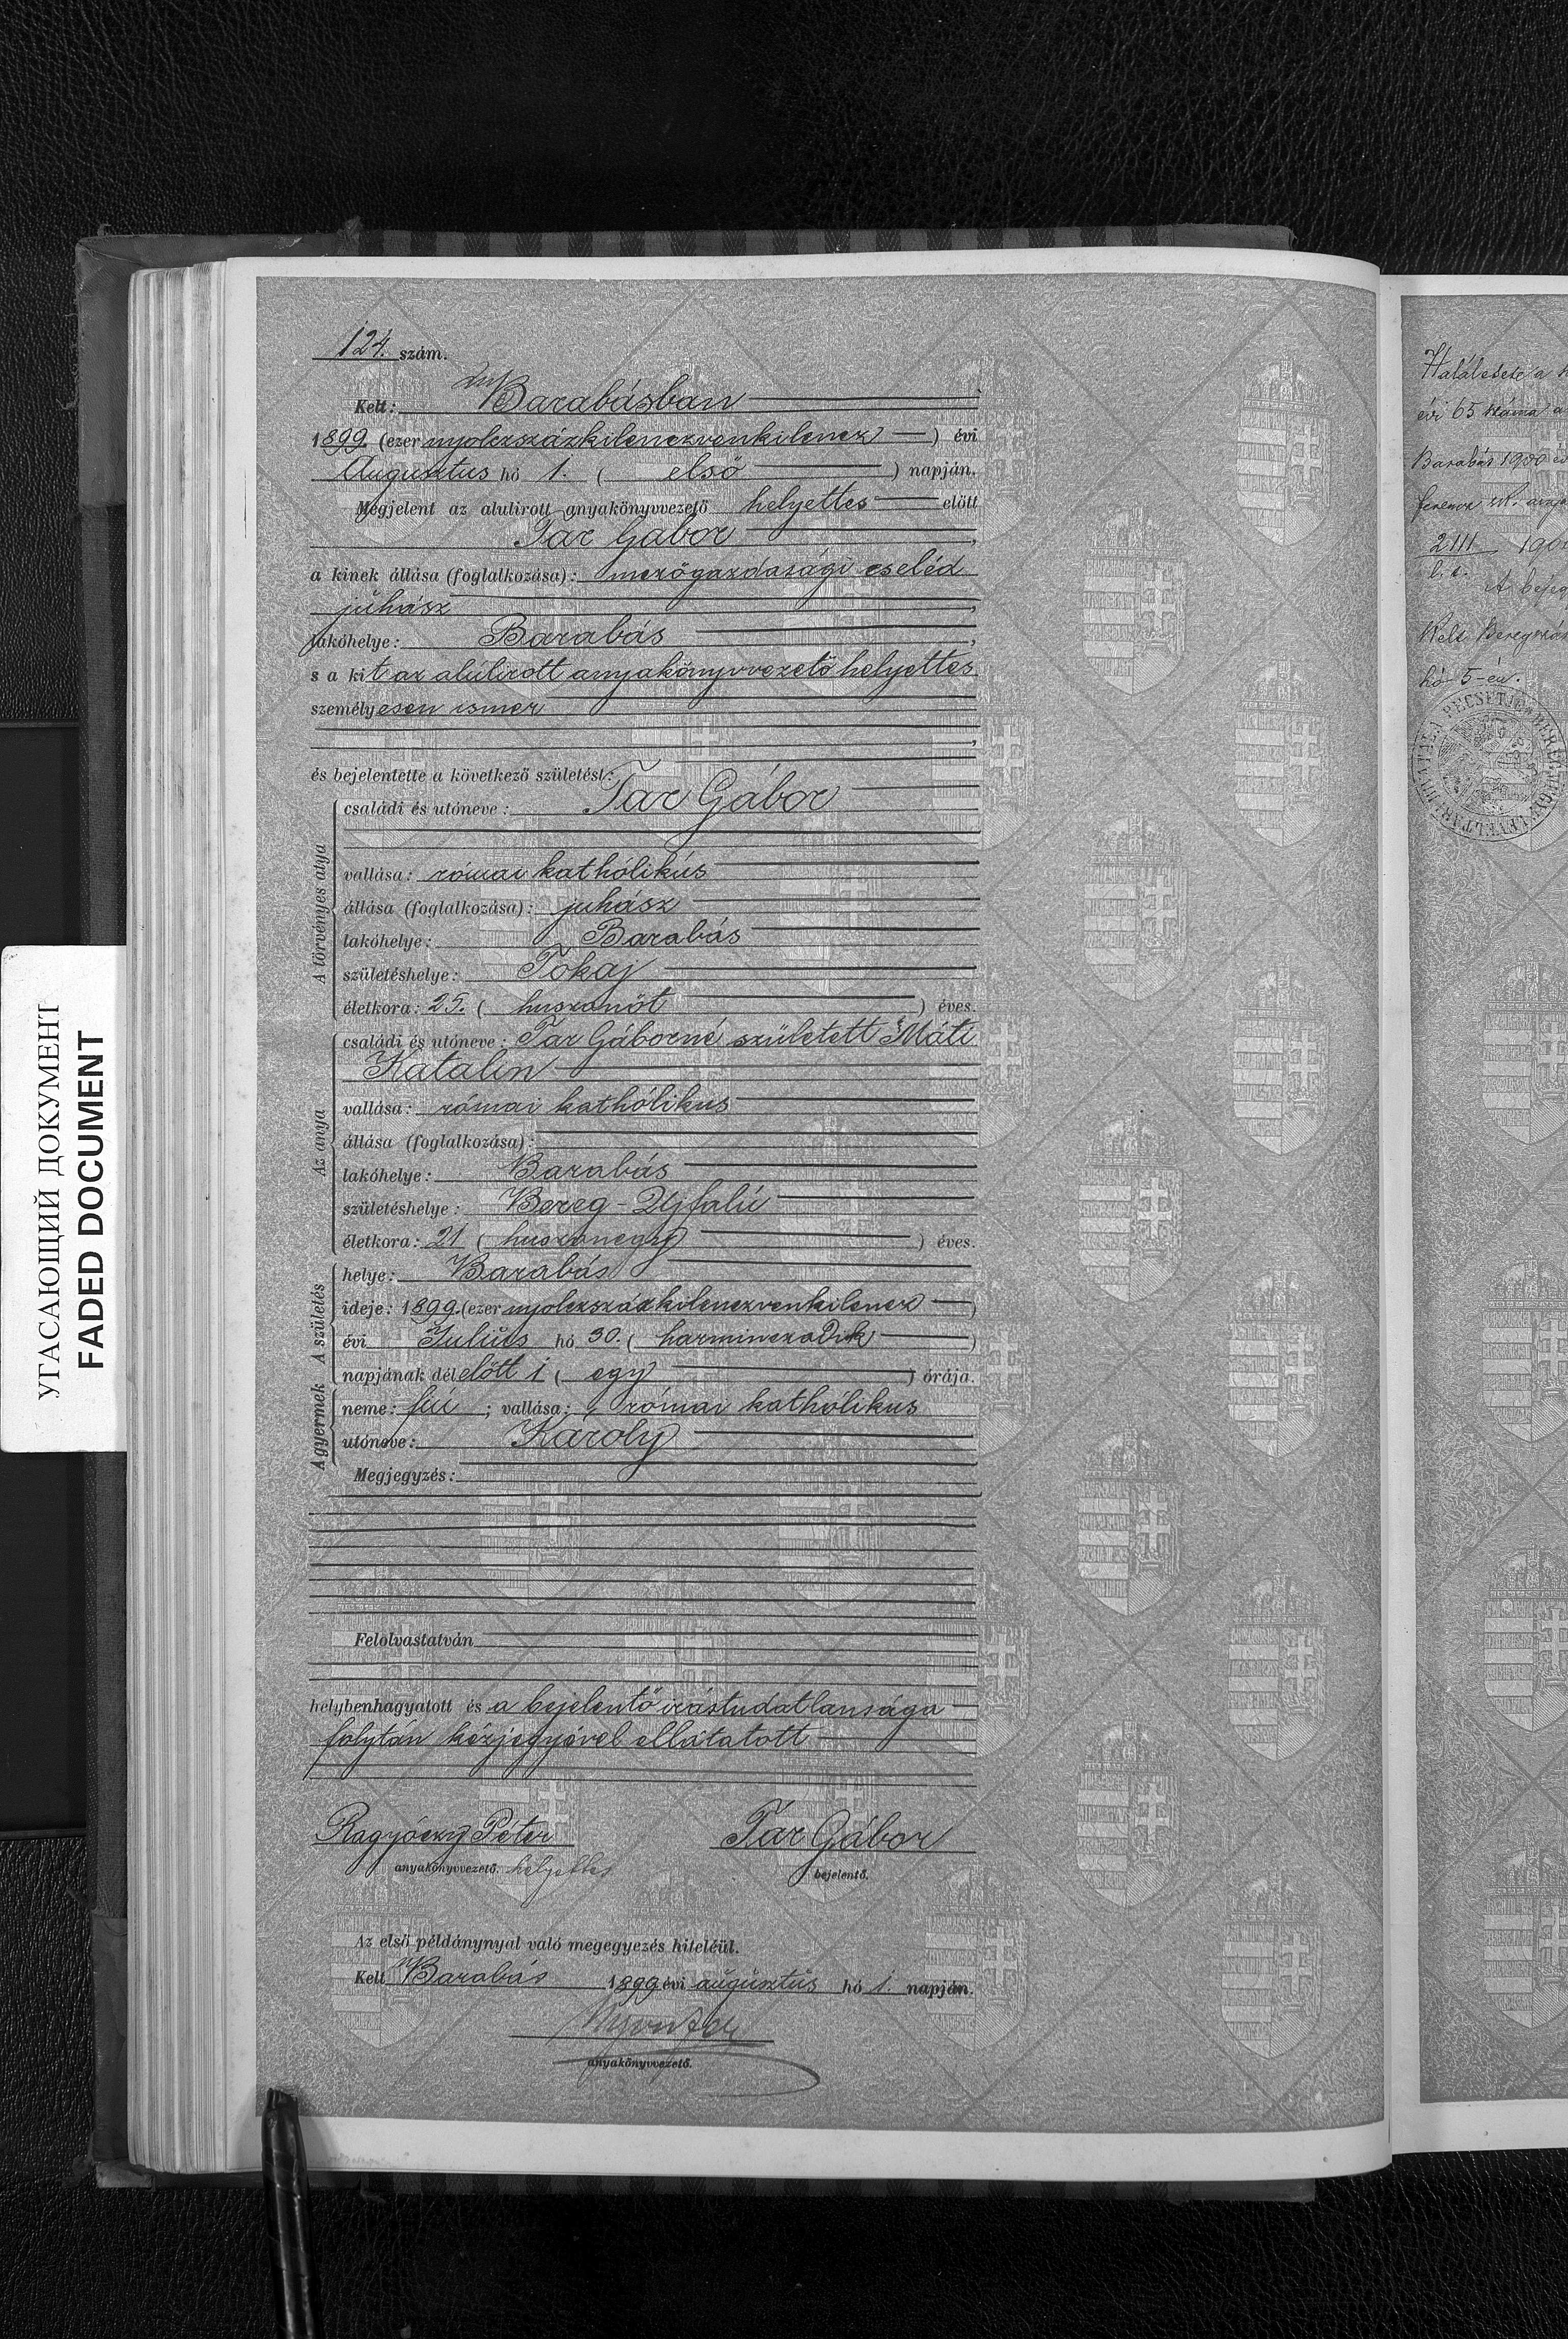 124. szám.
Kelt: Barabásban
1899. (ezer nyolczszázkilenczvenkilencz) évi
Augusztus hó 1. ( első ) napján.
Megjelent az alulirott anyakönyvvezető helyettes előtt
Tar Gábor ,
a kinek állása (foglalkozása): mezőgazdasági cseléd
juhász ,
lakóhelye: Barabás ,
s a kit az alúlirott anyakönyvvezető helyettes
személyesen ismer
,
és bejelentette a következő születést:
A törvényes atya
családi és utóneve: Tar Gábor
vallása: római kathólikús
állása (foglalkozása): juhász
lakóhelye: Barabás
születéshelye: Tokaj
életkora: 25. ( huszonöt ) éves.
Az anya
családi és utóneve: Tar Gáborné született Máti
Katalin
vallása: római kathólikus
állása (foglalkozása):
lakóhelye: Barabás
születéshelye: Bereg-Ujfalú
életkora: 21 ( huszonegy ) éves.
A születés
helye: Barabás
ideje: 1899. (ezer nyolczszázkilenczvenkilencz )
évi Július hó 30. ( harminczadik )
napjának délelőtt 1 ( egy ) órája.
A gyermek
neme: fiú ; vallása: római kathólikus
utóneve: Károly
Megjegyzés:
Felolvastatván
helybenhagyatott és a bejelentő irástudatlansága
folytán kézjegyével ellátatott
Ragyóczy Péter
anyakönyvvezető. helyettes
Tár Gábor
bejelentő.
Az első példánynyal való megegyezés hiteléül.
Kelt Barabás 1899 évi augusztús hó 1. napján.
anyakönyvvezető.
Halálesete a
évi 65 száma a
Barabás 1900 év
ferencz
2 III 190
A bejeg
Kelt Beregszás
hó 5-én.
УГАСАЮЩИЙ ДОКУМЕНТ
FADED DOCUMENT